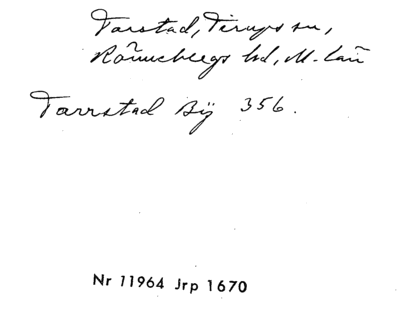 Tarstad, Tirups sn,
Rönnebergs hd, M-län
Tarrstad Bÿ 356.
Nr 11964 Jrp 1670